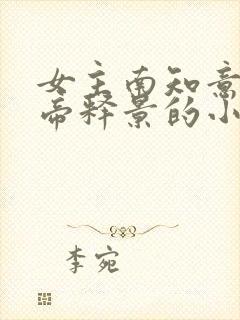 女主南知意
帝释景的小
李宛